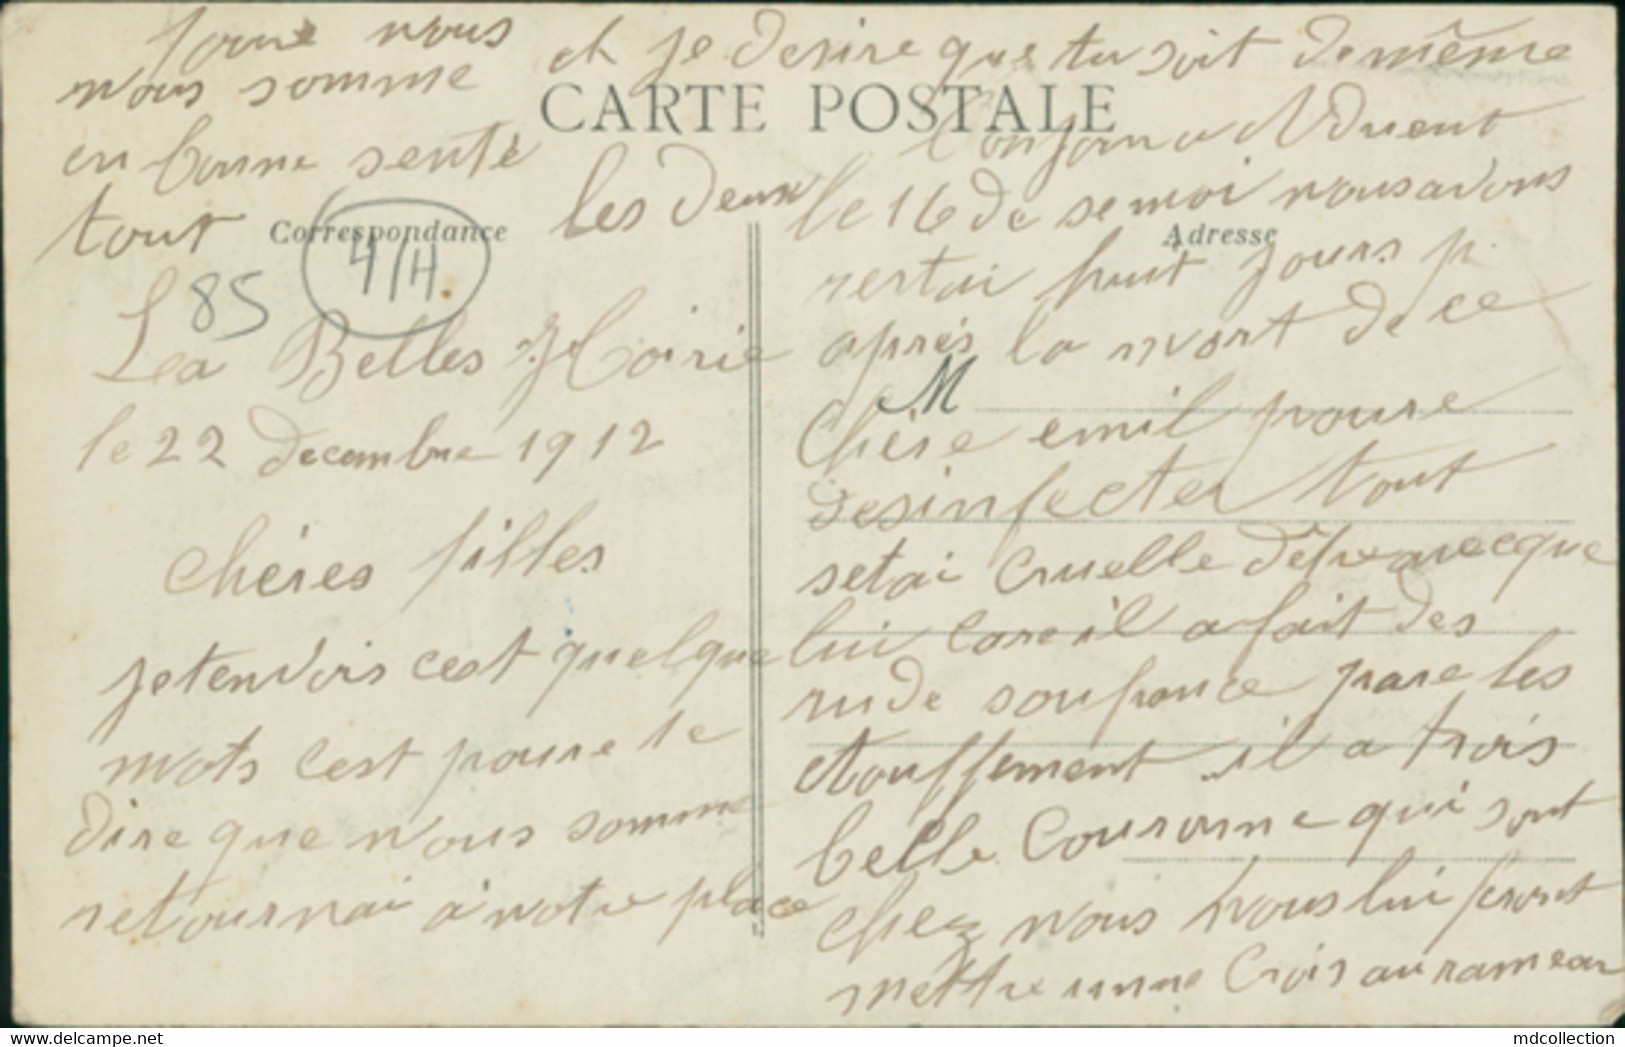 La Belles Hoirie
le 22 decembre 1912
chères filles
je tenvois cest quelque
mots cest poure te
dire que nous somme
retournai à notre place
le 16 de se moi nous avons
restai huit jours
après la mort de ce
chère emil poure
desinfecter tout
setai cruelle
lui care il a fait des
rude soufrance pare les
etouffement il a trois
belle couronne qui sont
chez nous nous lui feront
mettre unne crois au rameau
poure nous
nous somme
en bonne senté
tout les deux
et je desire que tu soit de même
CARTE POSTALE
Correspondance
Adresse
M
85
4/H
mdcollection